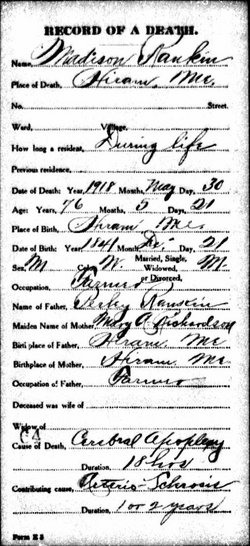 RECORD OF A DEATH.
Name, Madison Rankin
Place of Death, Hiram, Me.
No. Street.
Ward, Village,
How long a resident, During life
Previous residence,
Date of Death: Year, 1918 Months, May Day, 30
Age: Years, 76 Months, 5 Days, 21
Place of Birth, Hiram Me
Date of Birth: Year 1841 Month, Day, 21
Sex, M C W. Married, Single, Widowed, or Divorced, M
Occupation, Farmer
Name of Father, Rankin
Maiden Name of Mother, Mary A Richardson
Birthplace of Father, Hiram Me
Birthplace of Mother, Hiram Me
Occupation of Father, Farmer
Deceased was wife of
Widow of
Cause of Death, Cerebral Apoplexy
Duration, 18 hos
Contributing cause, Arterio Schrosis
Duration, 1 or 2 years
Form E 3